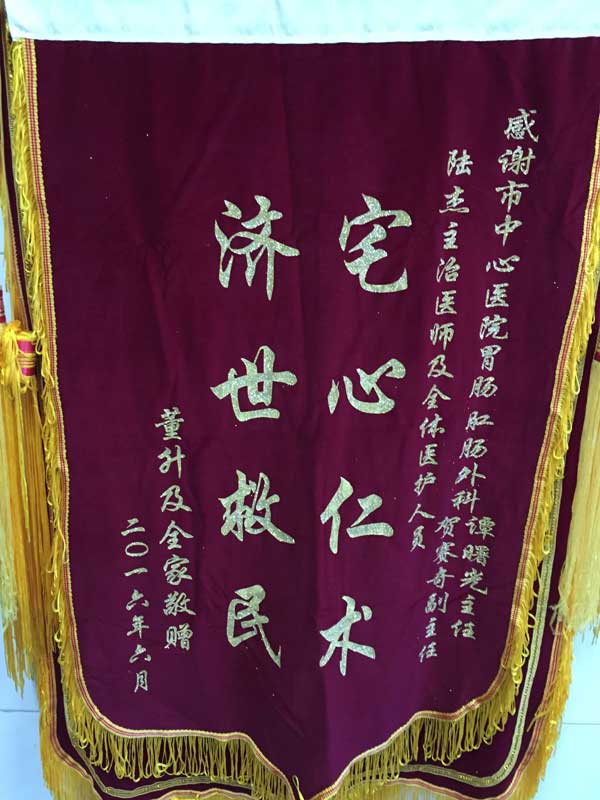 感谢市中心医院胃肠肛肠外科谭曙光主任
贺赛奇副主任
陆杰主治医师及全体医护人员
宅心仁术
济世救民
董升及全家敬赠
二〇一六年六月